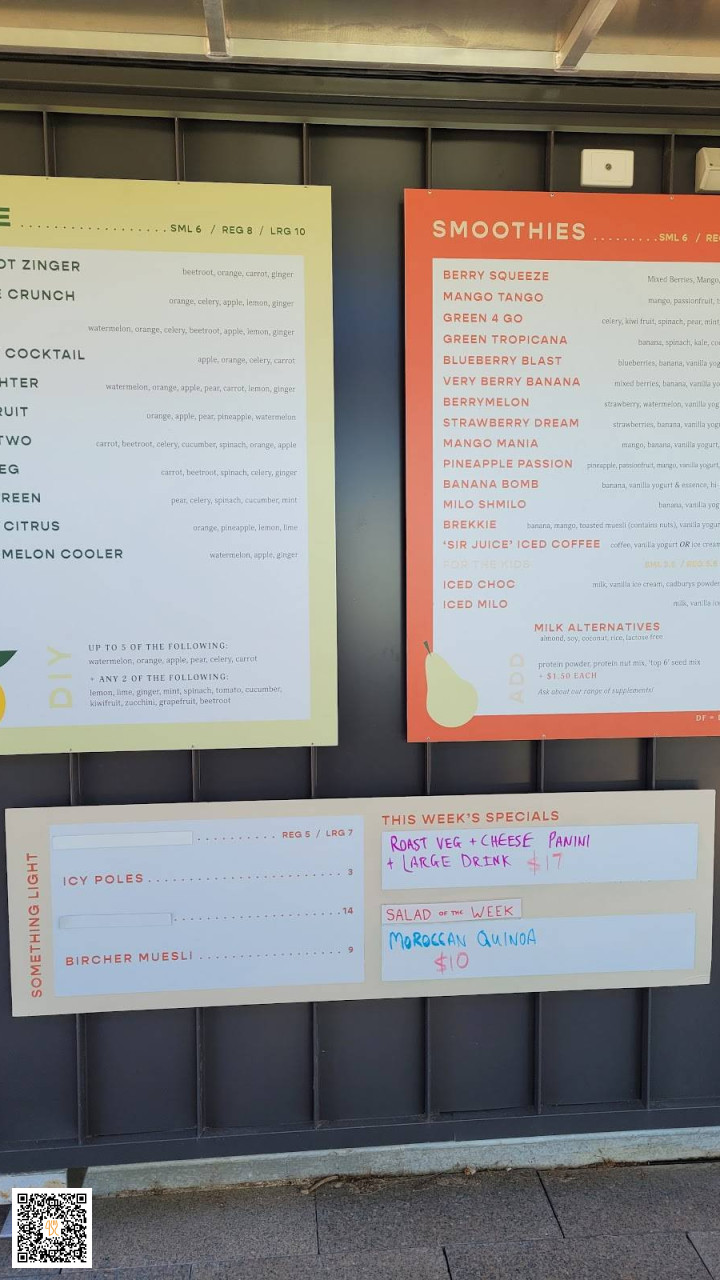 E .................. SML 6 / REG 8 / LRG 10
OT ZINGER beetroot, orange, carrot, ginger
E CRUNCH orange, celery, apple, lemon, ginger
watermelon, orange, celery, beetroot, apple, lemon, ginger
COCKTAIL apple, orange, celery, carrot
HTER watermelon, orange, apple, pear, carrot, lemon, ginger
RUIT orange, apple, pear, pineapple, watermelon
TWO carrot, beetroot, celery, cucumber, spinach, orange, apple
EG carrot, beetroot, spinach, celery, ginger
REEN pear, celery, spinach, cucumber, mint
CITRUS orange, pineapple, lemon, lime
MELON COOLER watermelon, apple, ginger
DIY
UP TO 5 OF THE FOLLOWING:
watermelon, orange, apple, pear, celery, carrot
+ ANY 2 OF THE FOLLOWING:
lemon, lime, ginger, mint, spinach, tomato, cucumber,
kiwifruit, zucchini, grapefruit, beetroot
SMOOTHIES ......... SML 6 / RE
BERRY SQUEEZE Mixed Berries, Mango,
MANGO TANGO mango, passionfruit, b
GREEN 4 GO celery, kiwi fruit, spinach, pear, mint,
GREEN TROPICANA banana, spinach, kale, co
BLUEBERRY BLAST blueberries, banana, vanilla yog
VERY BERRY BANANA mixed berries, banana, vanilla yo
BERRYMELON strawberry, watermelon, vanilla yog
STRAWBERRY DREAM strawberries, banana, vanilla yog
MANGO MANIA mango, banana, vanilla yogurt,
PINEAPPLE PASSION pineapple, passionfruit, mango, vanilla yogurt,
BANANA BOMB banana, vanilla yogurt & essence, hi-
MILO SHMILO banana, vanilla yog
BREKKIE banana, mango, toasted muesli (contains nuts), vanilla yogur
'SIR JUICE' ICED COFFEE coffee, vanilla yogurt OR ice cream
FOR THE KIDS
ICED CHOC milk, vanilla ice cream, cadburys powder
ICED MILO milk, vanilla ic
MILK ALTERNATIVES
almond, soy, coconut, rice, lactose free
ADD
protein powder, protein nut mix, 'top 6' seed mix
+ $1.50 EACH
Ask about our range of supplements!
DF =
SOMETHING LIGHT
.......... REG 5 / LRG 7
ICY POLES .................... 3
.................... 14
BIRCHER MUESLI ................ 9
THIS WEEK'S SPECIALS
ROAST VEG + CHEESE PANINI
+ LARGE DRINK $17
SALAD OF THE WEEK
MOROCCAN QUINOA
$10